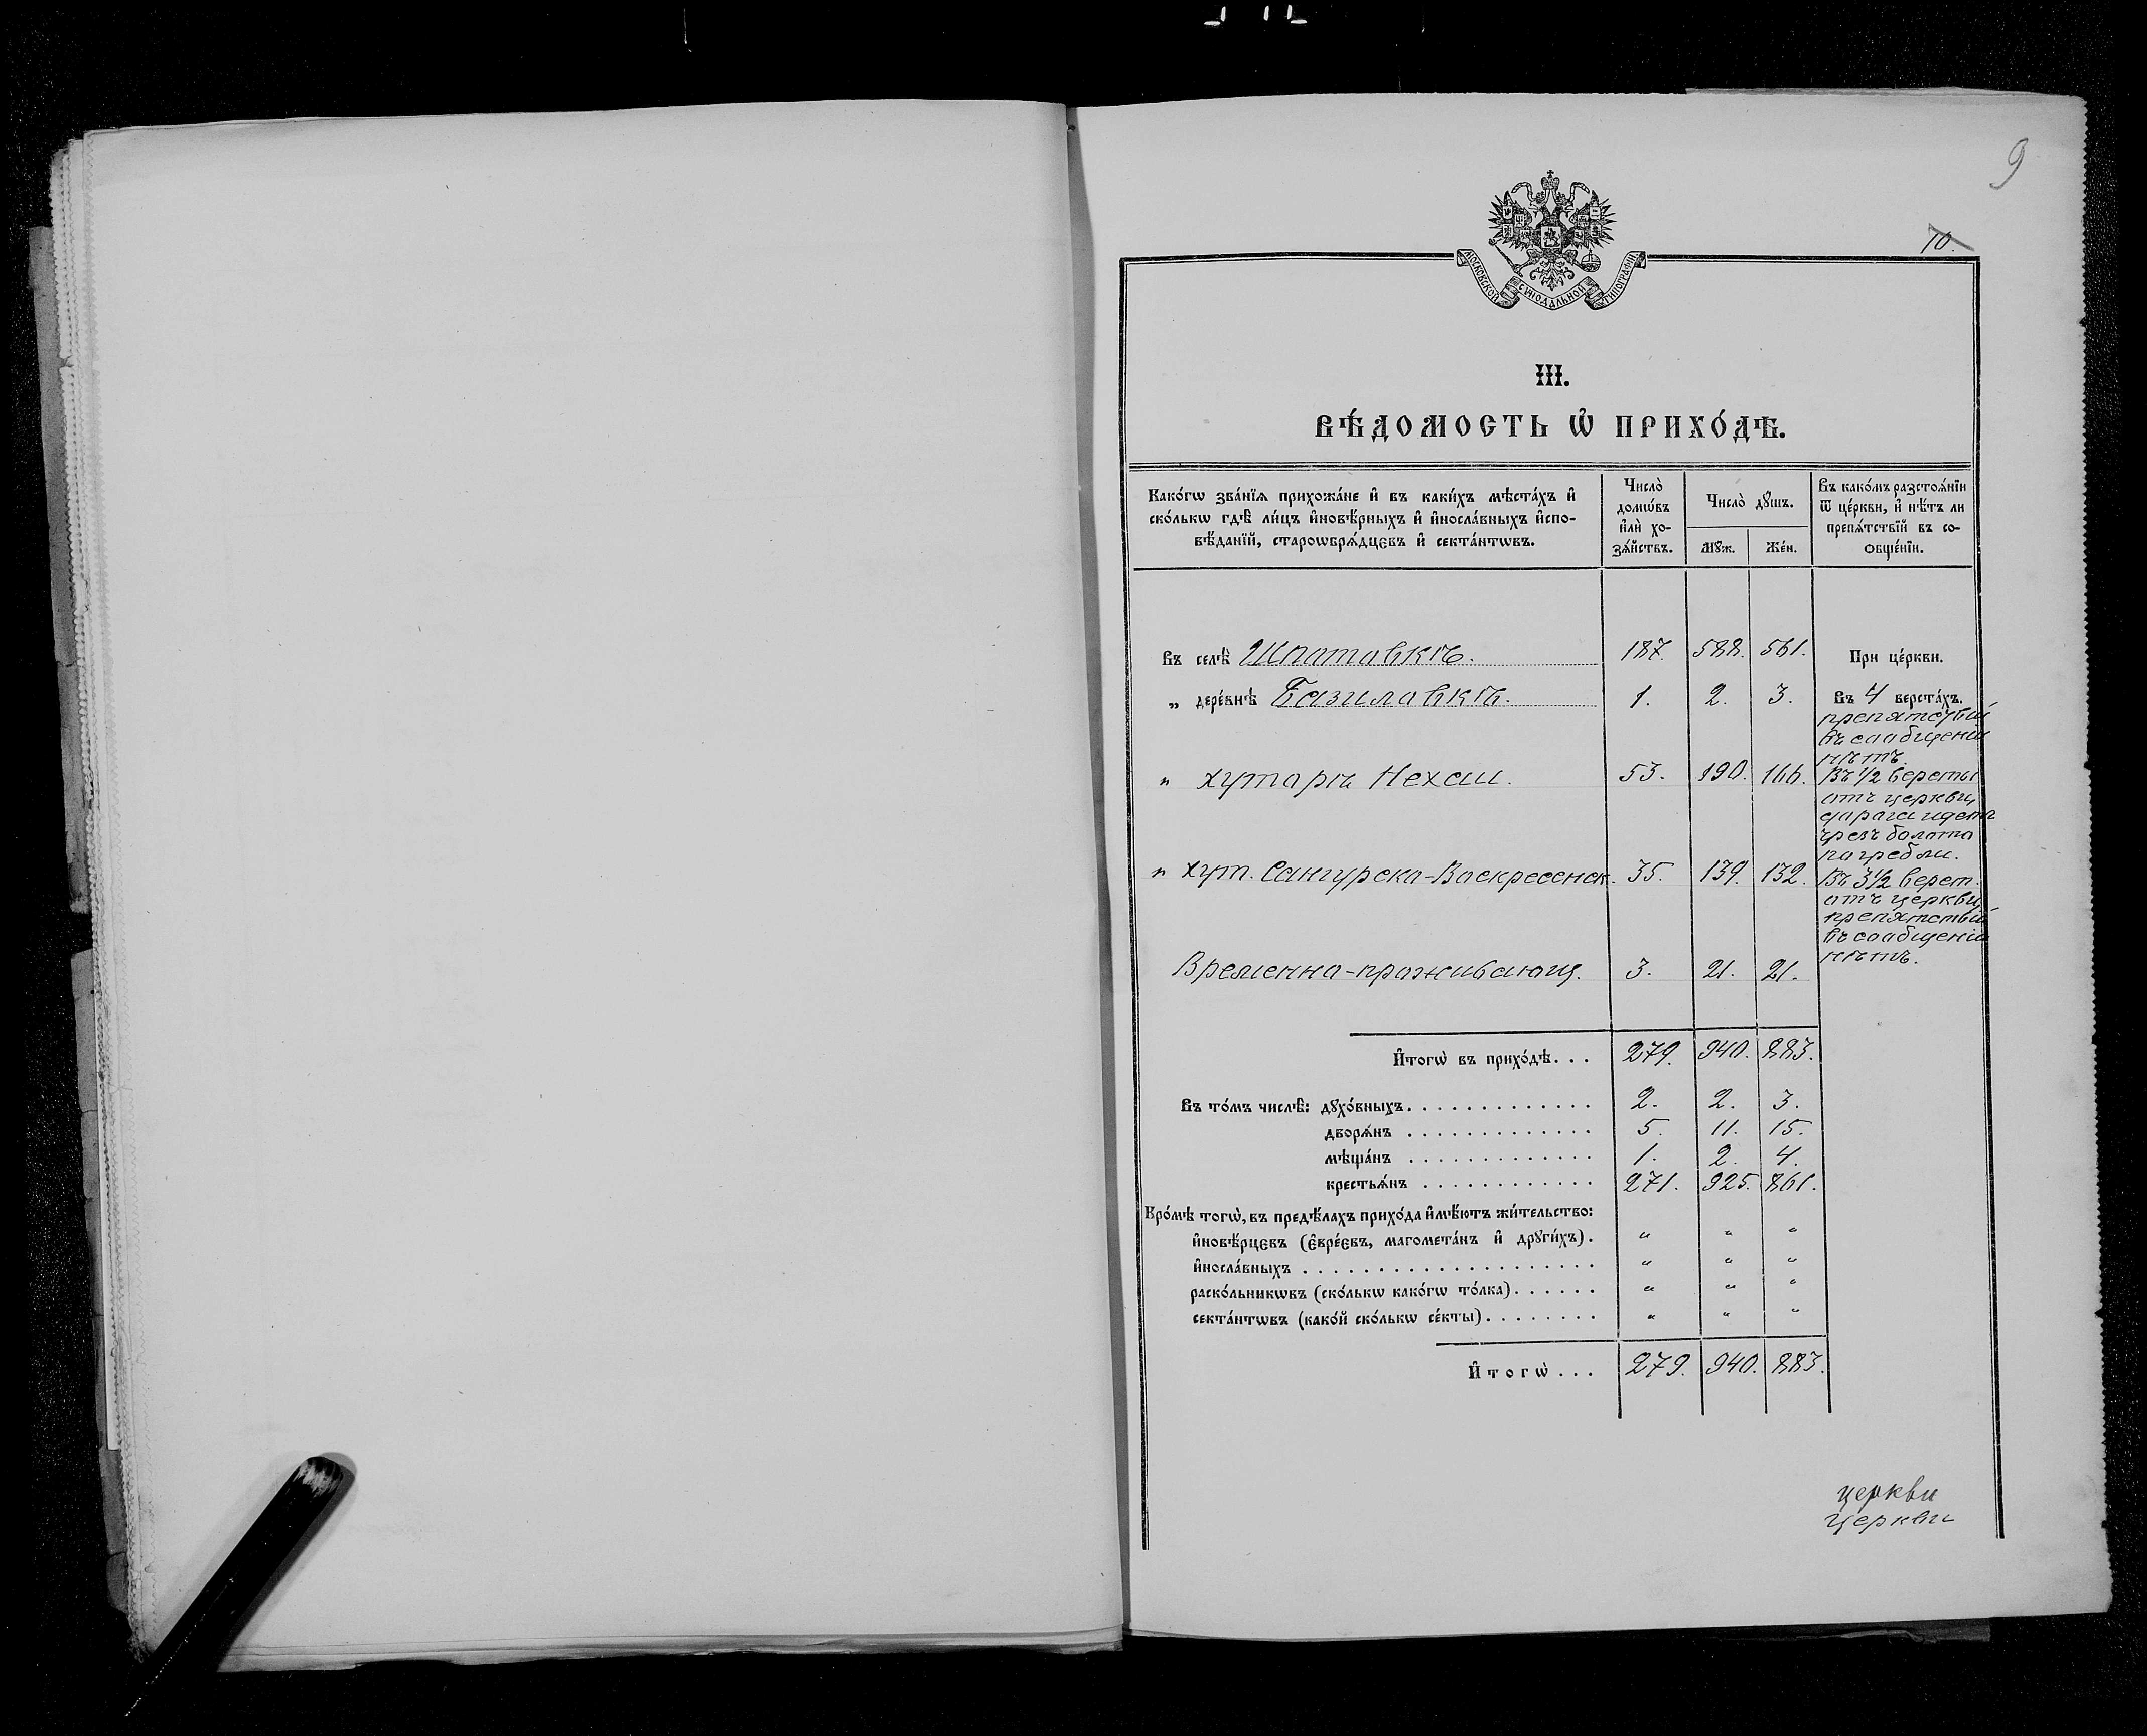 9
10.
МОСКОВСКОЙ СѴНОДАЛЬНОЙ ТИПОГРАФІИ
III.
ВѢ́ДОМОСТЬ Ѡ҆ ПРИХО́ДѢ.
Како́гѡ зва́нїѧ прихожа́не и҆ въ каки́хъ мѣста́хъ и҆
ско́лькѡ гдѣ̀ ли́цъ и҆новѣ́рныхъ и҆ и҆носла́вныхъ и҆спо-
вѣ́данїй, староѡбрѧ́дцєвъ и҆ секта́нтѡвъ.
Число̀
домѡ́въ
и҆лѝ хо-
зѧ́йствъ.
Число̀ дꙋ́шъ.
Мꙋ́ж.
Же́н.
Въ како́мъ разстоѧ́нїи
ѿ це́ркви, и҆ нѣ́тъ ли
препѧ́тствїй въ со-
ѻбще́нїи.
Въ селѣ̀ Шпотовкѣ. 187. 588. 561. При це́ркви.
„ дере́внѣ Базиловкѣ. 1. 2. 3. Въ 4 верста́хъ.
препятствій
въ сообщеніи
нѣтъ.
„ хуторѣ Нехаи. 53. 190. 166. Въ 1/2 версты
отъ церкви,
дорога идетъ
чрезъ болото
по гребли.
„ хут. Сангурско-Воскресенск. 35. 139. 132. Въ 3 1/2 верст.
отъ церкви,
препятствій
въ сообщеніи
нѣтъ.
Временно-проживающ. 3. 21. 21.
И҆тогѡ̀ въ прихо́дѣ. . . 279. 940. 883.
Въ то́мъ числѣ̀: дꙋхо́вныхъ. . . . . . . . . . . . . 2. 2. 3.
дворѧ́нъ . . . . . . . . . . . . . 5. 11. 15.
мѣща́нъ . . . . . . . . . . . . . 1. 2. 4.
крестьѧ́нъ . . . . . . . . . . . . 271. 925. 861.
Кро́мѣ тогѡ̀, въ предѣ́лахъ прихо́да и҆мѣ́ютъ жи́тельство:
и҆новѣ́рцєвъ (є҆вре́євъ, магомета́нъ и҆ дрꙋги́хъ). „ „ „
и҆носла́вныхъ . . . . . . . . . . . . . . . . . . . . „ „ „
раско́льникѡвъ (ско́лькѡ како́гѡ то́лка). . . . . . „ „ „
секта́нтѡвъ (како́й ско́лькѡ се́кты). . . . . . . . „ „ „
И҆тогѡ̀ . . . 279. 940. 883.
церкви
Церкви